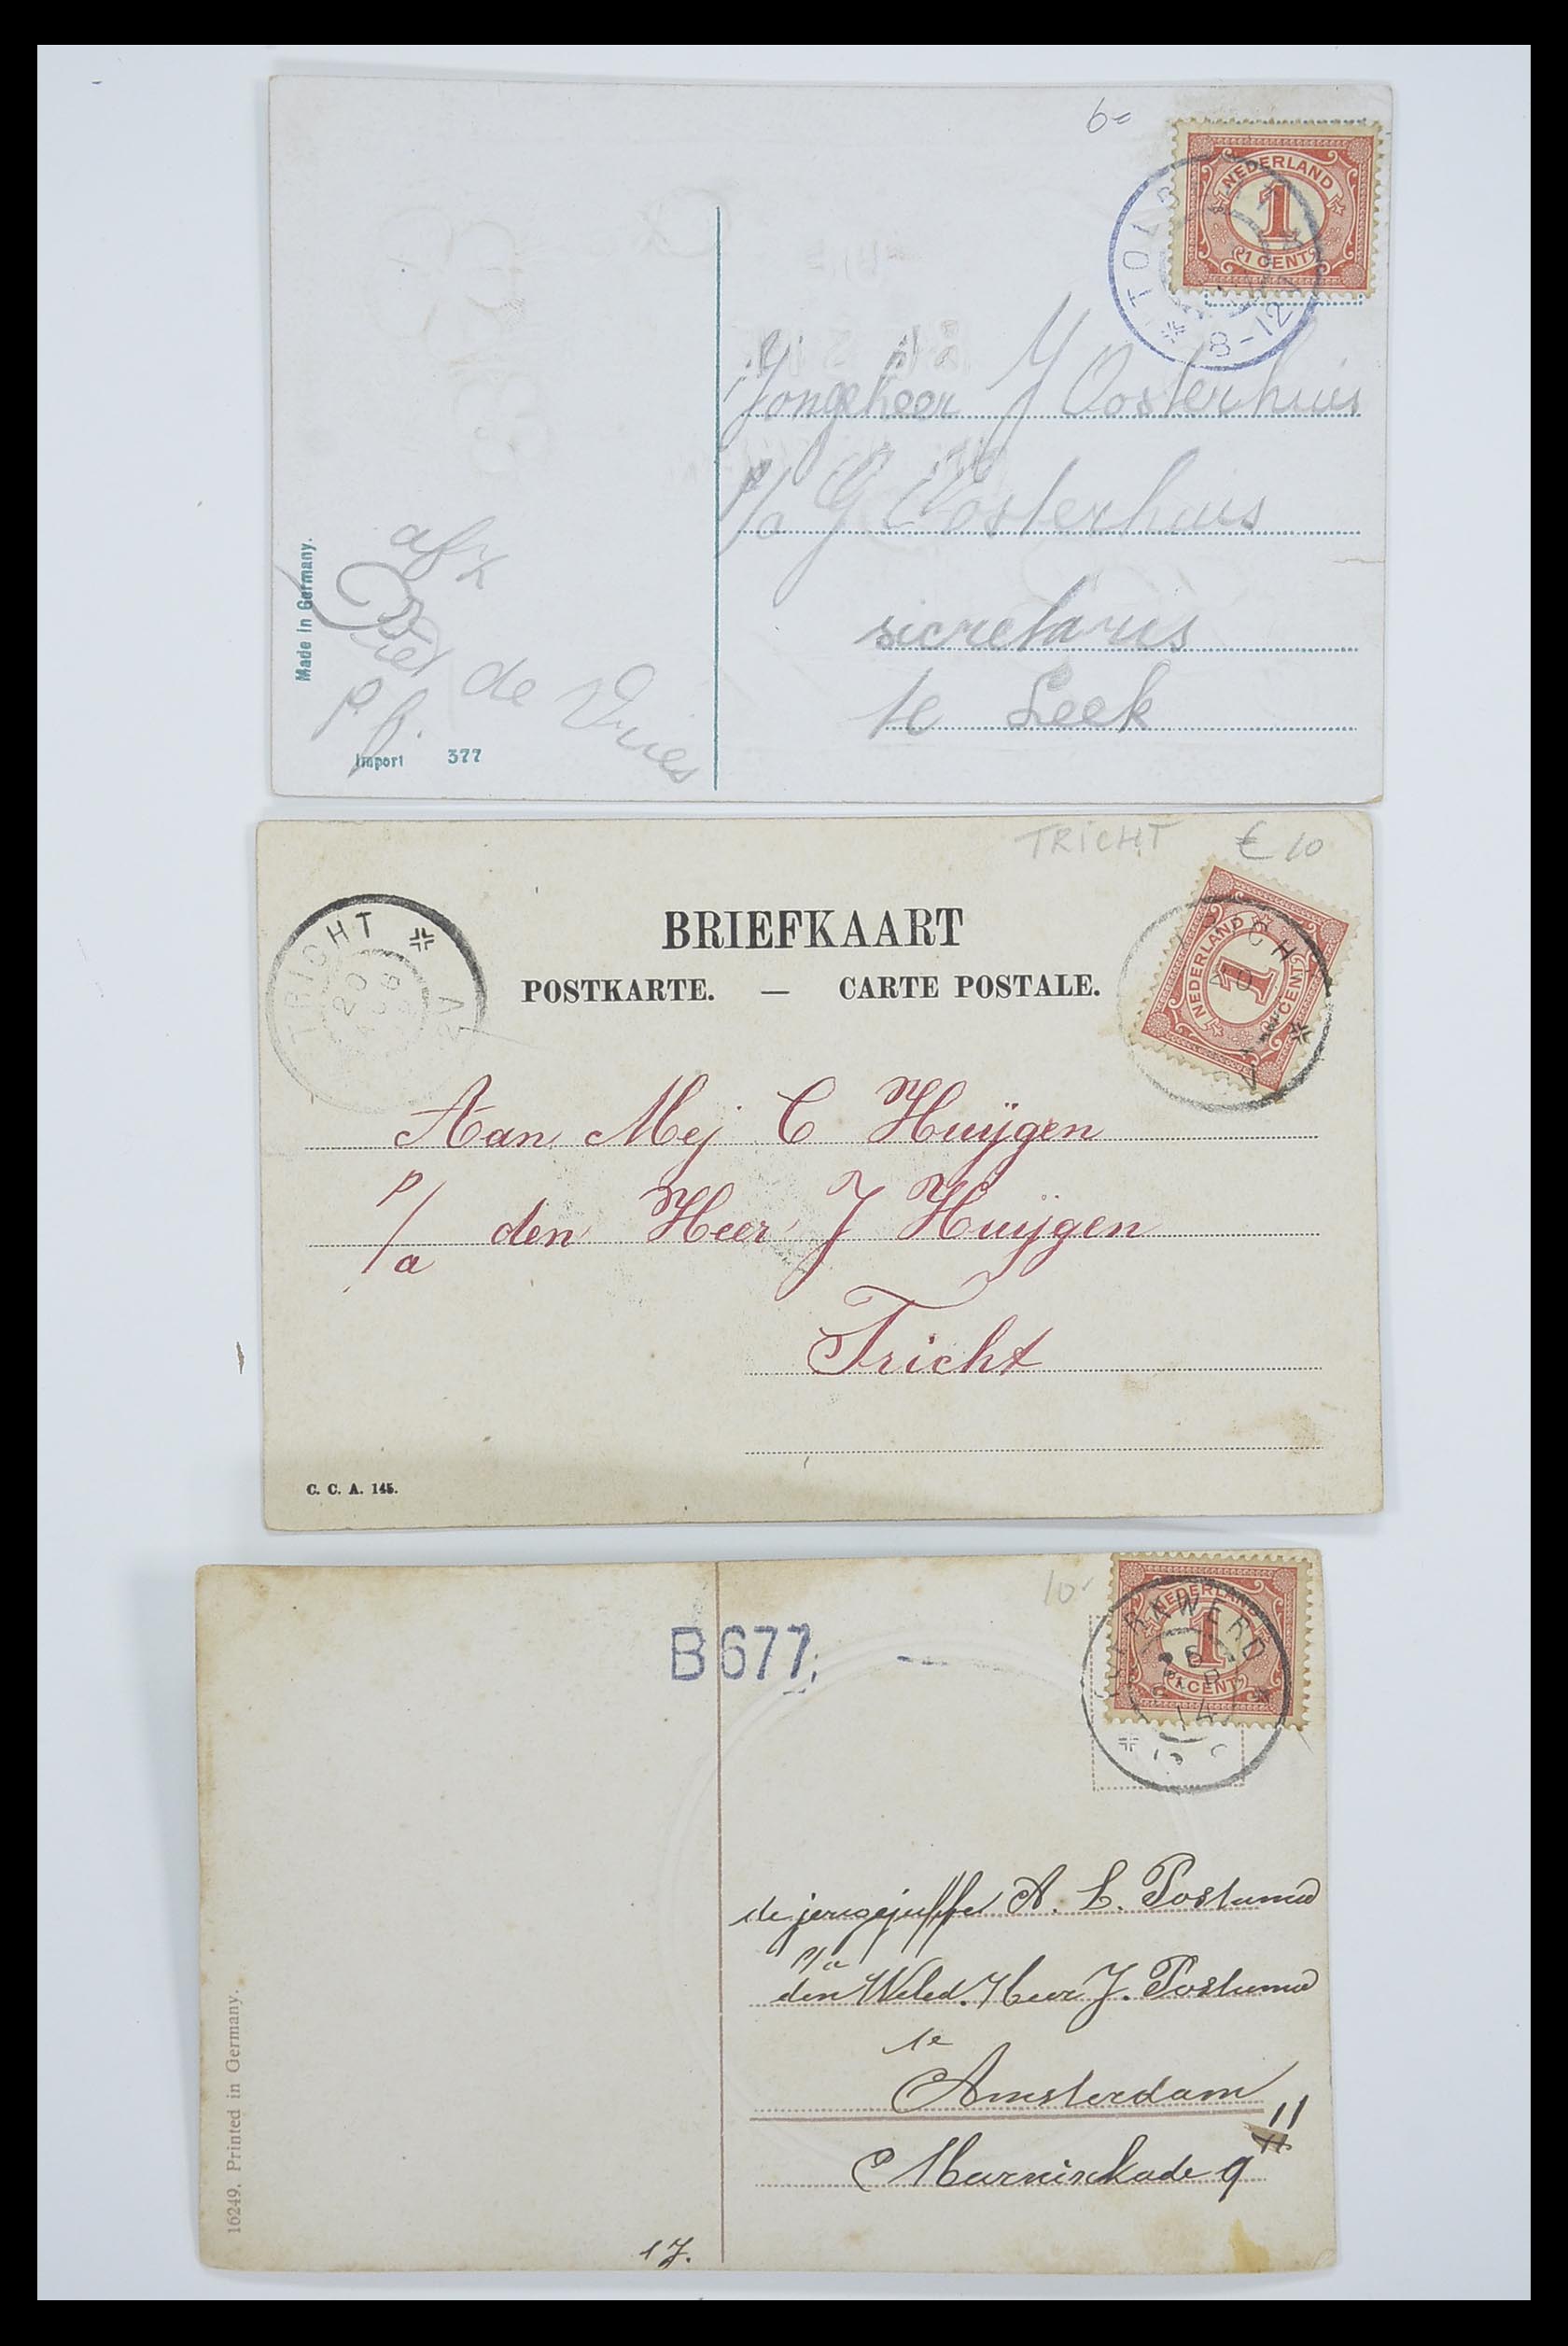 6=
NEDERLAND
1
1 CENT
8-12
Jongeheer J Oosterhuis
p/a G Oosterhuis
sicretaris
te Leek
afz
Piet de Vries
p. f.
Made in Germany.
Import 377
TRICHT € 10
TRICHT
20
BRIEFKAART
POSTKARTE. — CARTE POSTALE.
NEDERLAND
1
1 CENT
Aan Mej C Huijgen
p/a den Heer J Huijgen
Tricht
C. C. A. 145.
10-
B677
NEDERLAND
1
1 CENT
14
de jongejuffr A. L. Postuma
p/a
den Weled. Heer J. Postuma
te
Amsterdam
Marnixkade 9 II
17.
16249. Printed in Germany.